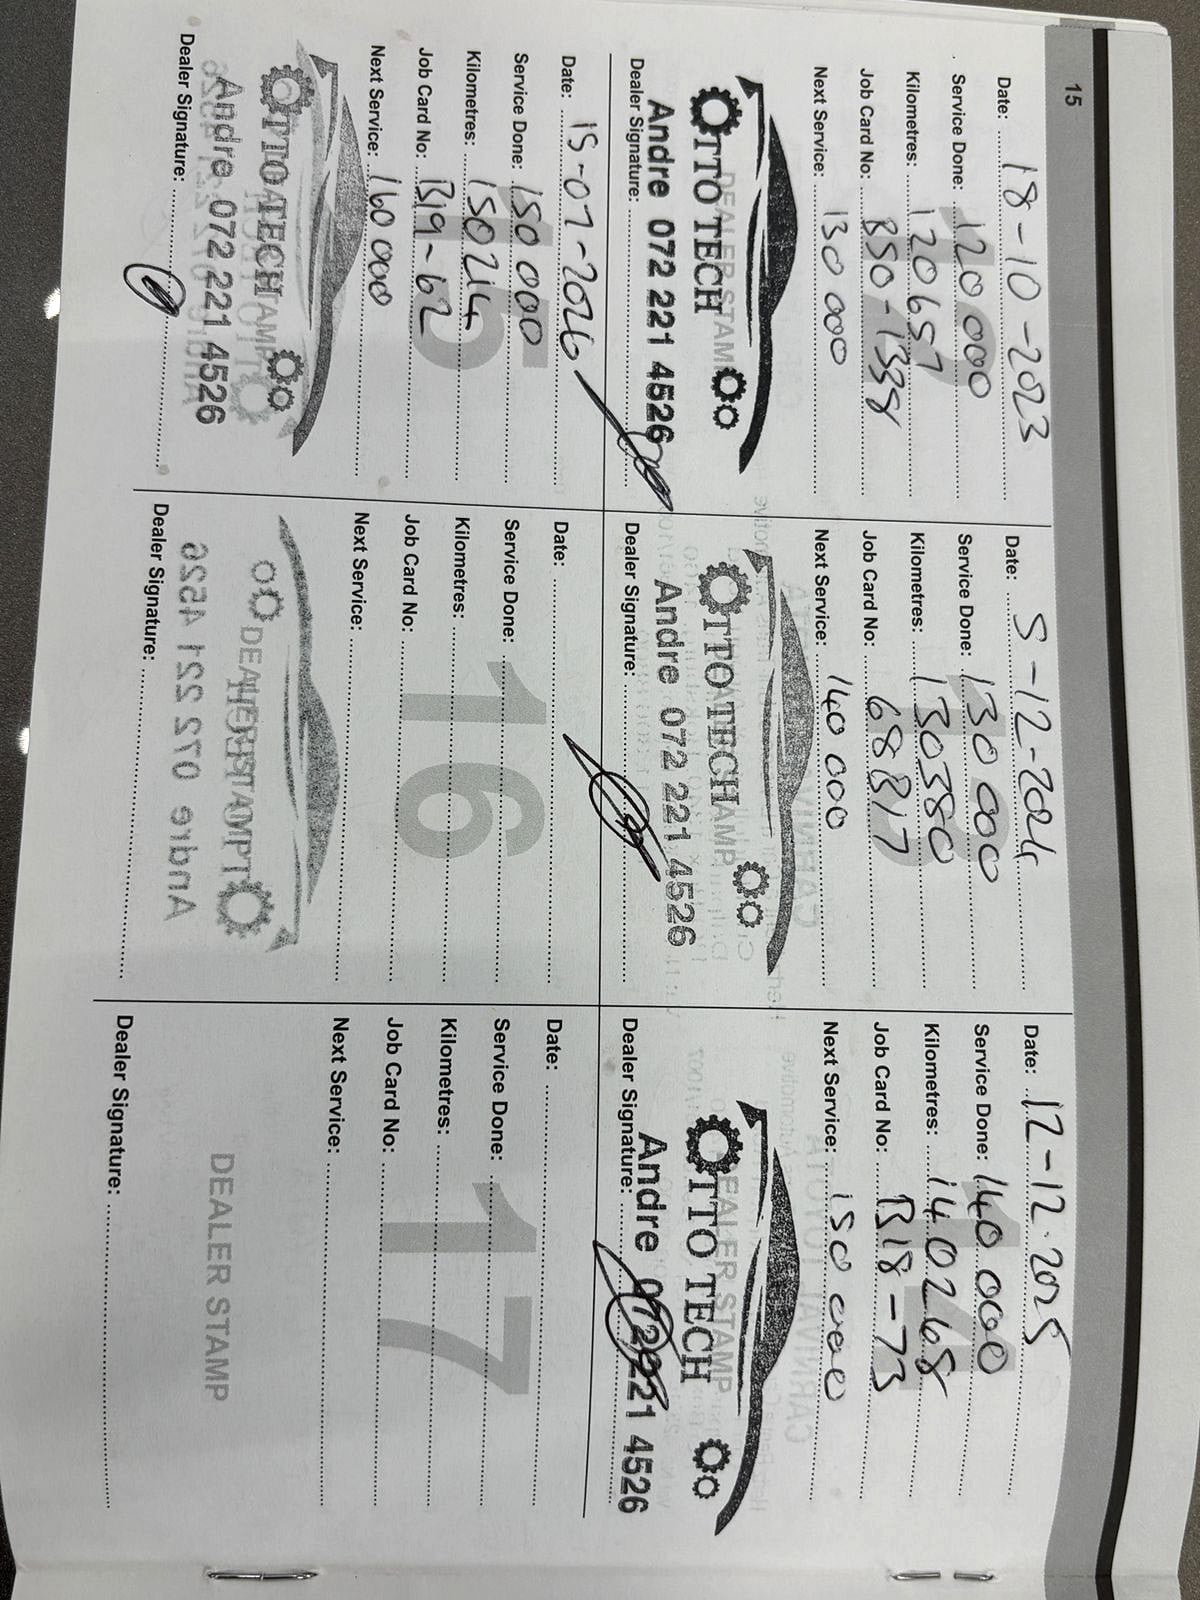 15
Date: 18-10-2023
Service Done: 120 000
Kilometres: 120657
Job Card No: B50-1338
Next Service: 130 000
DEALER STAMP
OTTO TECH
Andre 072 221 4526
Dealer Signature:
Date: 5-12-2024
Service Done: 130 000
Kilometres: 130380
Job Card No: 68B17
Next Service: 140 000
OTTO TECH
Andre 072 221 4526
Dealer Signature:
14
Date: 12-12-2025
Service Done: 140 000
Kilometres: 140268
Job Card No: B18-73
Next Service: 150 000
DEALER STAMP
OTTO TECH
Andre 072 221 4526
Dealer Signature:
15
Date: 15-07-2026
Service Done: 150 000
Kilometres: 150214
Job Card No: B19-62
Next Service: 160 000
OTTO TECH
Andre 072 221 4526
Dealer Signature:
16
Date:
Service Done:
Kilometres:
Job Card No:
Next Service:
DEALER STAMP
Andre 072 221 4526
Dealer Signature:
17
Date:
Service Done:
Kilometres:
Job Card No:
Next Service:
DEALER STAMP
Dealer Signature: